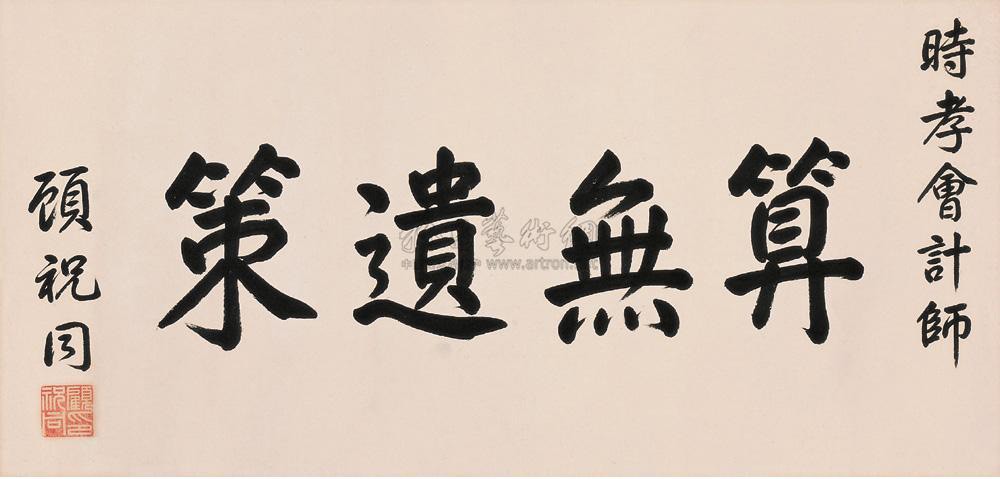 時孝會計師
算無遺策
顧祝同
顧祝同印
www.artron.net